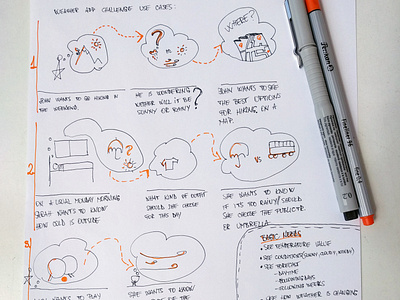 WEATHER APP CHALLENGE USE CASES:
1
?
WHERE?
JOHN WANTS TO GO HIKING IN
THE WEEKEND.
HE IS WONDERING
WETHER WILL IT BE
SUNNY OR RAINY?
JOHN WANTS TO SEE
THE BEST OPTIONS
FOR HIKING ON A
MAP.
2
?
VS
ON A USUAL MONDAY MORNING
SARAH WANTS TO KNOW
HOW COLD IS OUTSIDE
WHAT KIND OF OUTFIT
SHOULD SHE CHOOSE
FOR THIS DAY
SHE WANTS TO KNOW
IF IT'S TO RAINY/ SHOULD
SHE CHOOSE THE PUBLIC TR.
OR UMBRELLA
3
WANTS TO PLAY
SHE WANTS TO KNOW
OF THE
BASIC NEEDS
SEE TEMPERATURE VALUE
SEE CONDITIONS (SUNNY, CLOUDY, WINDY)
SEE FORECAST
- DAYTIME
- FOLLOWING DAYS
- FOLLOWING HOURS
SEE HOW WEATHER IS CHANGING
0.2